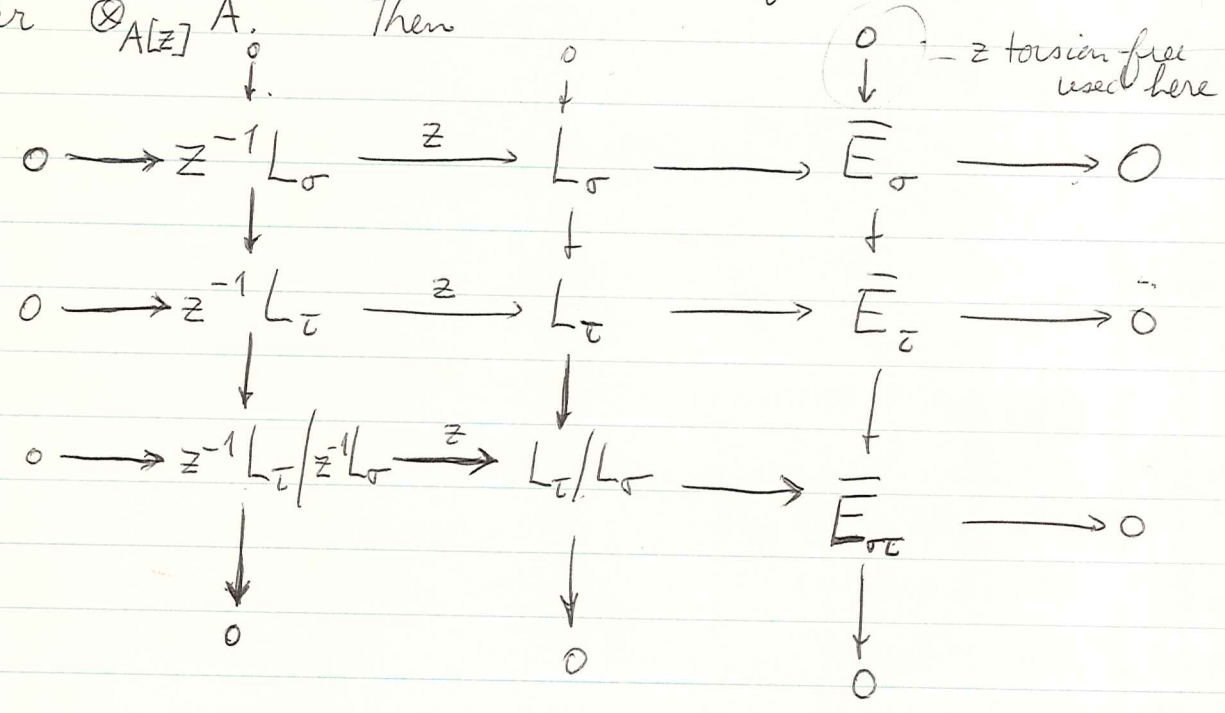 ⊗_{A[z]} A. Then
0 0 0 — z torsion-free
used here
0 ⟶ z^{-1} L_σ ⟶^{z} L_σ ⟶ \overline{E}_σ ⟶ 0
0 ⟶ z^{-1} L_τ ⟶^{z} L_τ ⟶ \overline{E}_τ ⟶ 0
0 ⟶ z^{-1} L_τ / z^{-1} L_σ ⟶^{z} L_τ / L_σ ⟶ \overline{E}_{στ} ⟶ 0
0 0 0